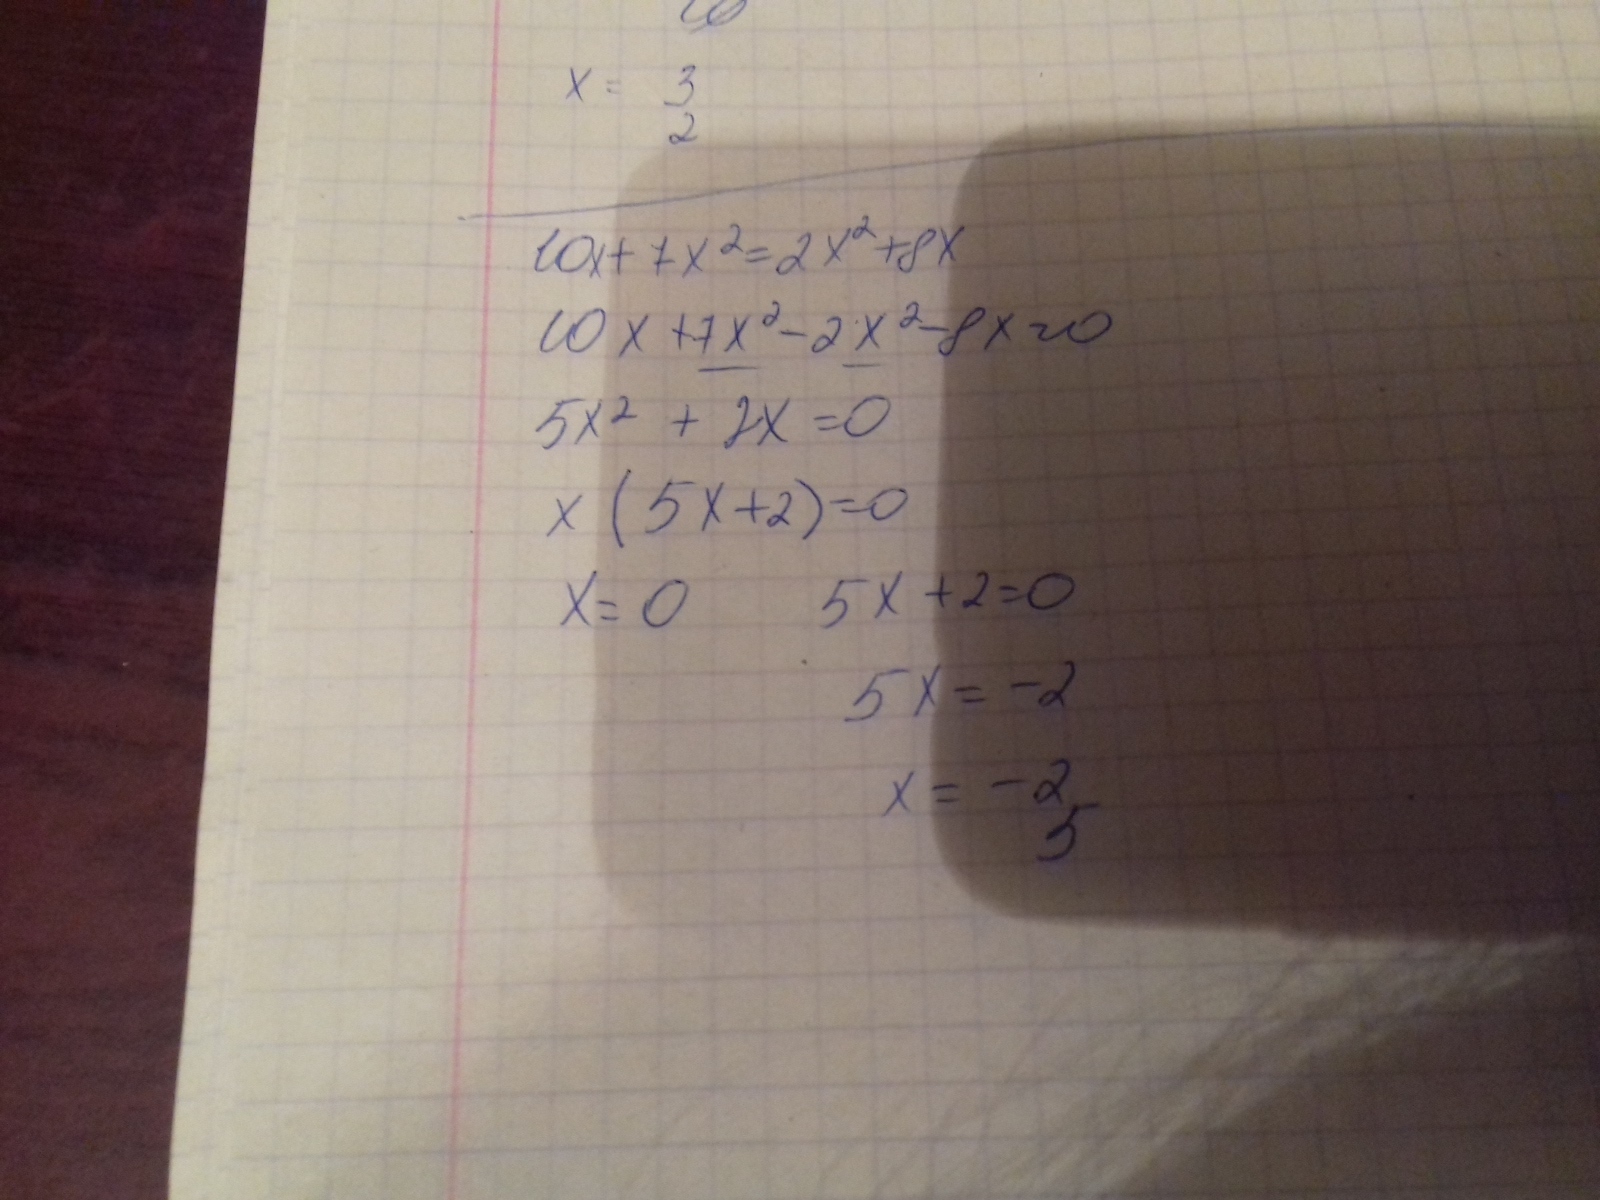 x = 3
2
10x+7x²=2x²+8x
10x+7x²-2x²-8x=0
5x² + 2x =0
x (5x+2)=0
x=0 5x+2=0
5x=-2
x = -2
5